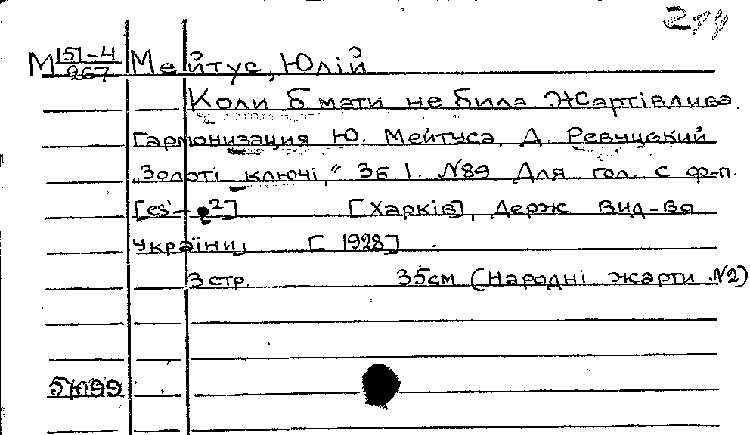 М 151-4/267 Мейтус, Юлій
Коли б мати не била Жартівлива.
Гармонизация Ю. Мейтуса, Д. Ревуцький
„Золоті ключі," Зб I. №89 Для гол. с ф-п.
[es' - e²] [Харків], Держ Вид-во
України, [1928].
3 стр. 35см (Народні жарти №2)